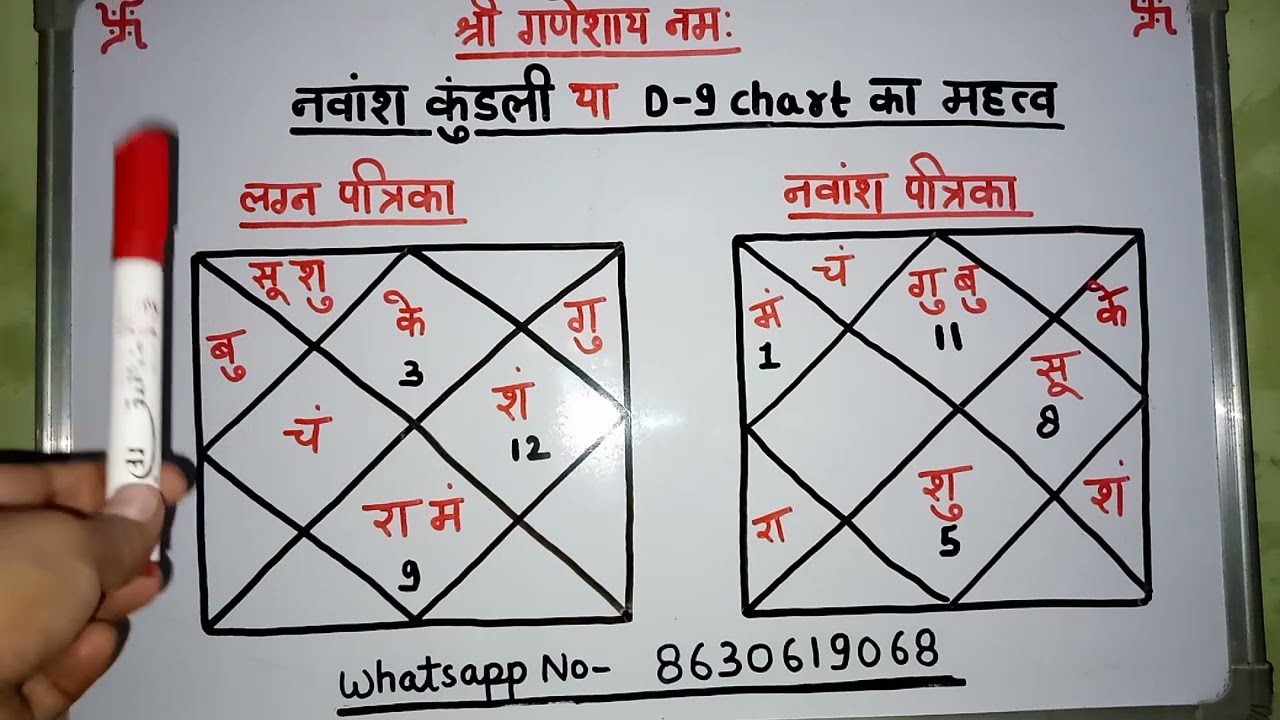 श्री गणेशाय नमः
नवांश कुंडली या D-9 chart का महत्व
लग्न पत्रिका
सू शु
बु
के
3
गु
चं
शं
12
रा मं
9
नवांश पत्रिका
चं
मं
1
गु बु
11
के
सू
8
रा
शु
5
शं
Whatsapp No- 8630619068